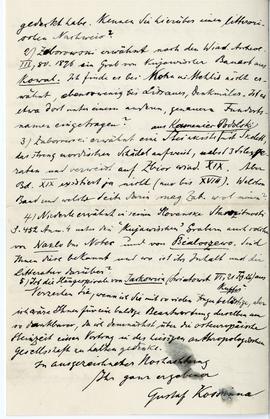 gedacht habe. Kennen Sie hierüber einen litterari-
schen Nachweis?
2) Zaborowski erwähnt nach den Wiad. Archeol.
III, 80. 1876 ein Grab von kujawischer Bauart aus
Kowal. Ich finde es bei nicht er-
wähnt, ebensowenig bei Denkmäler. Ist es
etwa dort unter einem anderen, genauern Fundorts-
namen eingetragen? aus Podolsk
3) Zaborowski erwähnt ein mit Skelett,
das streng nordischen Schädel aufweist, nebst 3
und verweist auf Zbior wiad. XIX. Aber
Bd. XIX existiert ja nicht (nur bis XVIII). Welchen
Band und welche Seit
4) Niederle erwähnt in seinen Slovanske Starožitnosti
S. 452 Anm. 4 unter den "Kujawischen" Gräbern auch solche
von Naklo bei Notec und von Bialoszewo. Sind
Ihnen diese bekannt und wo ist ihr Inhalt und die
Litteratur darüber?
5) Ist die von Jackowice (Światowit VI, 21)
Verzeihen Sie, wenn ich Sie mit so vielen Fragen belästige, aber
ich wäre Ihnen für eine baldige Beantwortung derselben um
so dankbarer, da ich demnächst über die osteuropäische
Steinzeit einen Vortrag in der hiesigen anthropologischen
Gesellschaft zu halten gedenke.
In ausgezeichneter Hochachtung
Ihr ganz ergebener
Gustaf Kossinna